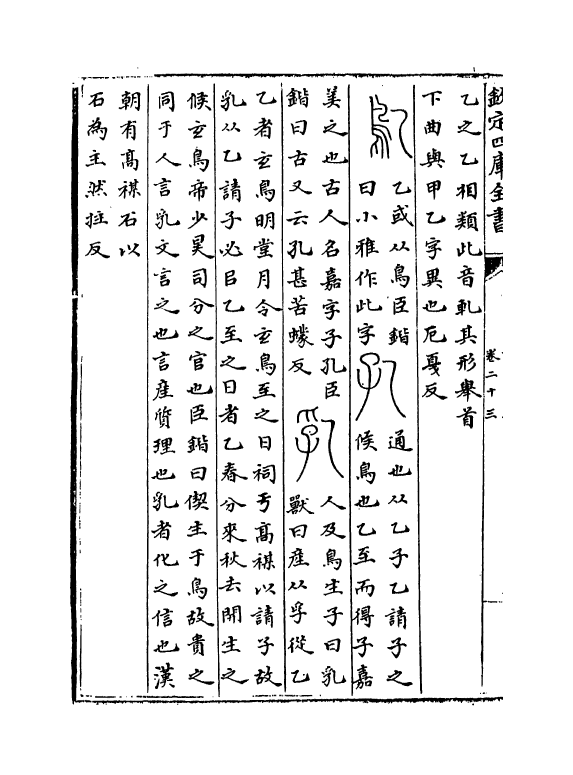 欽定四庫全書
卷二十三
乙之乙相類此音軋其形舉首
下曲與甲乙字異也厄戛反
鳦
乙或从鳥臣鍇
曰小雅作此字
孔
通也从乙子乙請子之
候鳥也乙至而得子嘉
美之也古人名嘉字子孔臣
鍇曰古又云孔甚苦蠓反
乳
人及鳥生子曰乳
獸曰產从孚從乙
乙者玄鳥明堂月令玄鳥至之日祠亏高禖以請子故
乳从乙請子必㠯乙至之日者乙春分來秋去開生之
候玄鳥帝少昊司分之官也臣鍇曰偰生于鳥故貴之
同于人言乳文言之也言產質理也乳者化之信也漢
朝有高禖石以
石為主然拄反